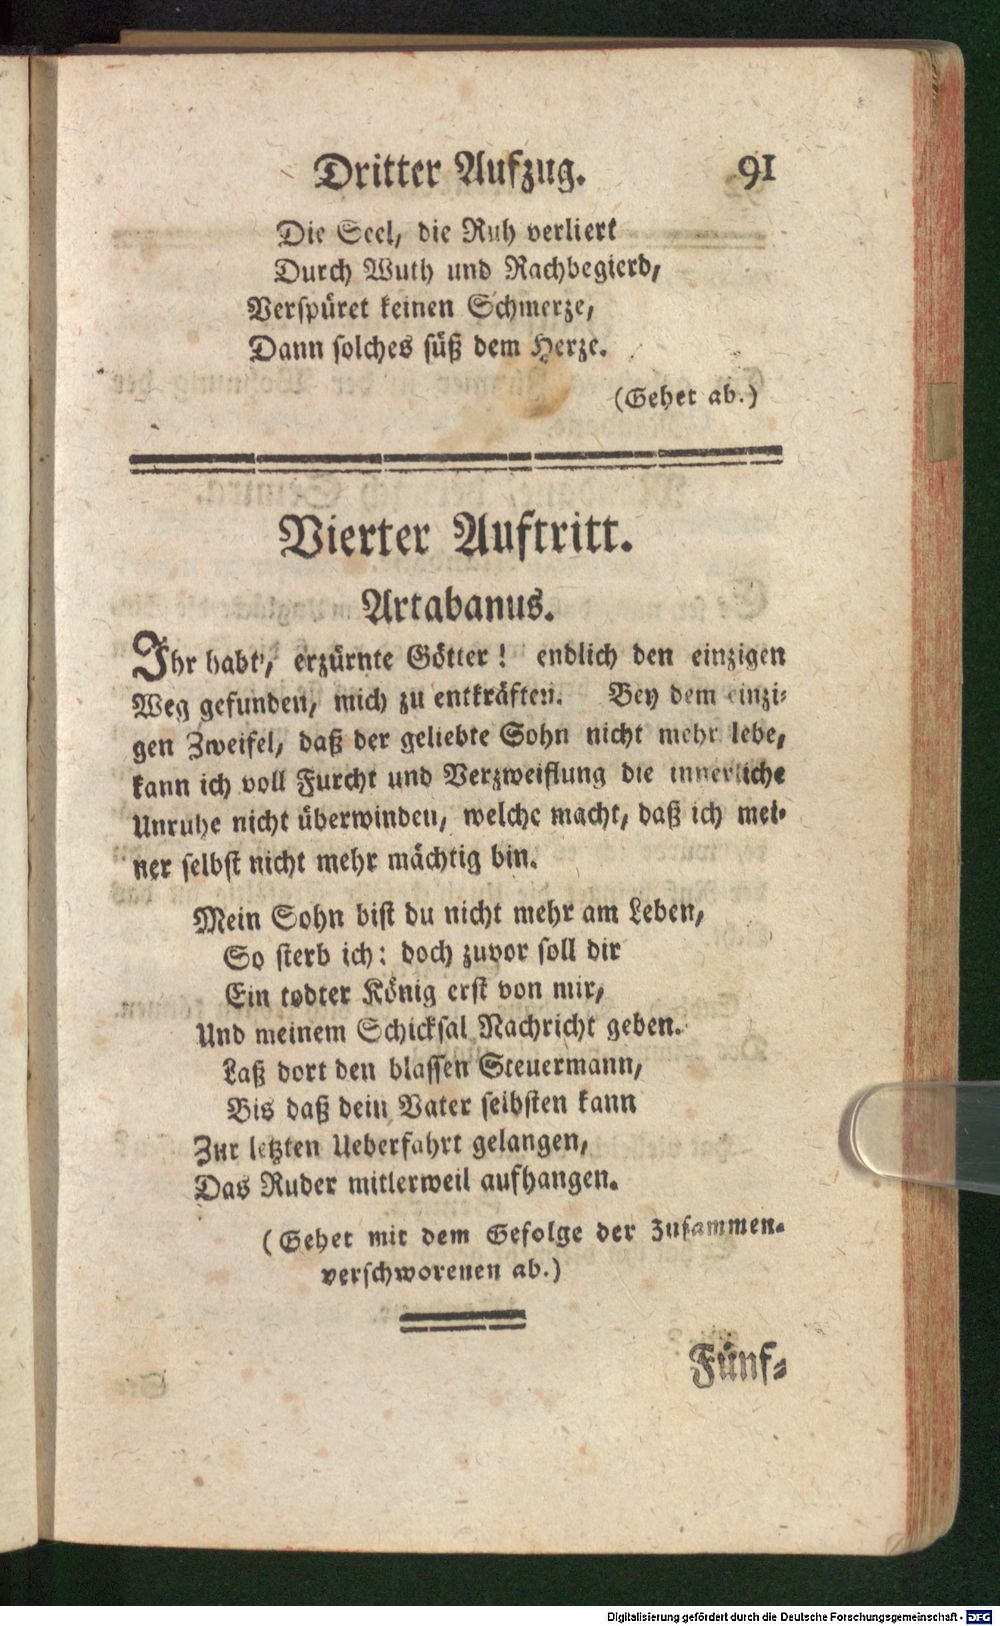 Dritter Aufzug. 91
Die Seel, die Ruh verliert
Durch Wuth und Rachbegierd,
Verspüret keinen Schmerze,
Dann solches süß dem Herze.
(Gehet ab.)
Vierter Auftritt.
Artabanus.
Ihr habt, erzürnte Götter! endlich den einzigen
Weg gefunden, mich zu entkräften. Bey dem einzi-
gen Zweifel, daß der geliebte Sohn nicht mehr lebe,
kann ich voll Furcht und Verzweiflung die innerliche
Unruhe nicht überwinden, welche macht, daß ich mei-
ner selbst nicht mehr mächtig bin.
Mein Sohn bist du nicht mehr am Leben,
So sterb ich: doch zuvor soll dir
Ein todter König erst von mir,
Und meinem Schicksal Nachricht geben.
Laß dort den blassen Steuermann,
Bis daß dein Vater selbsten kann
Zur letzten Ueberfahrt gelangen,
Das Ruder mitlerweil aufhangen.
(Gehet mit dem Gefolge der Zusammen-
verschworenen ab.)
Fünf-
Digitalisierung gefördert durch die Deutsche Forschungsgemeinschaft - DFG